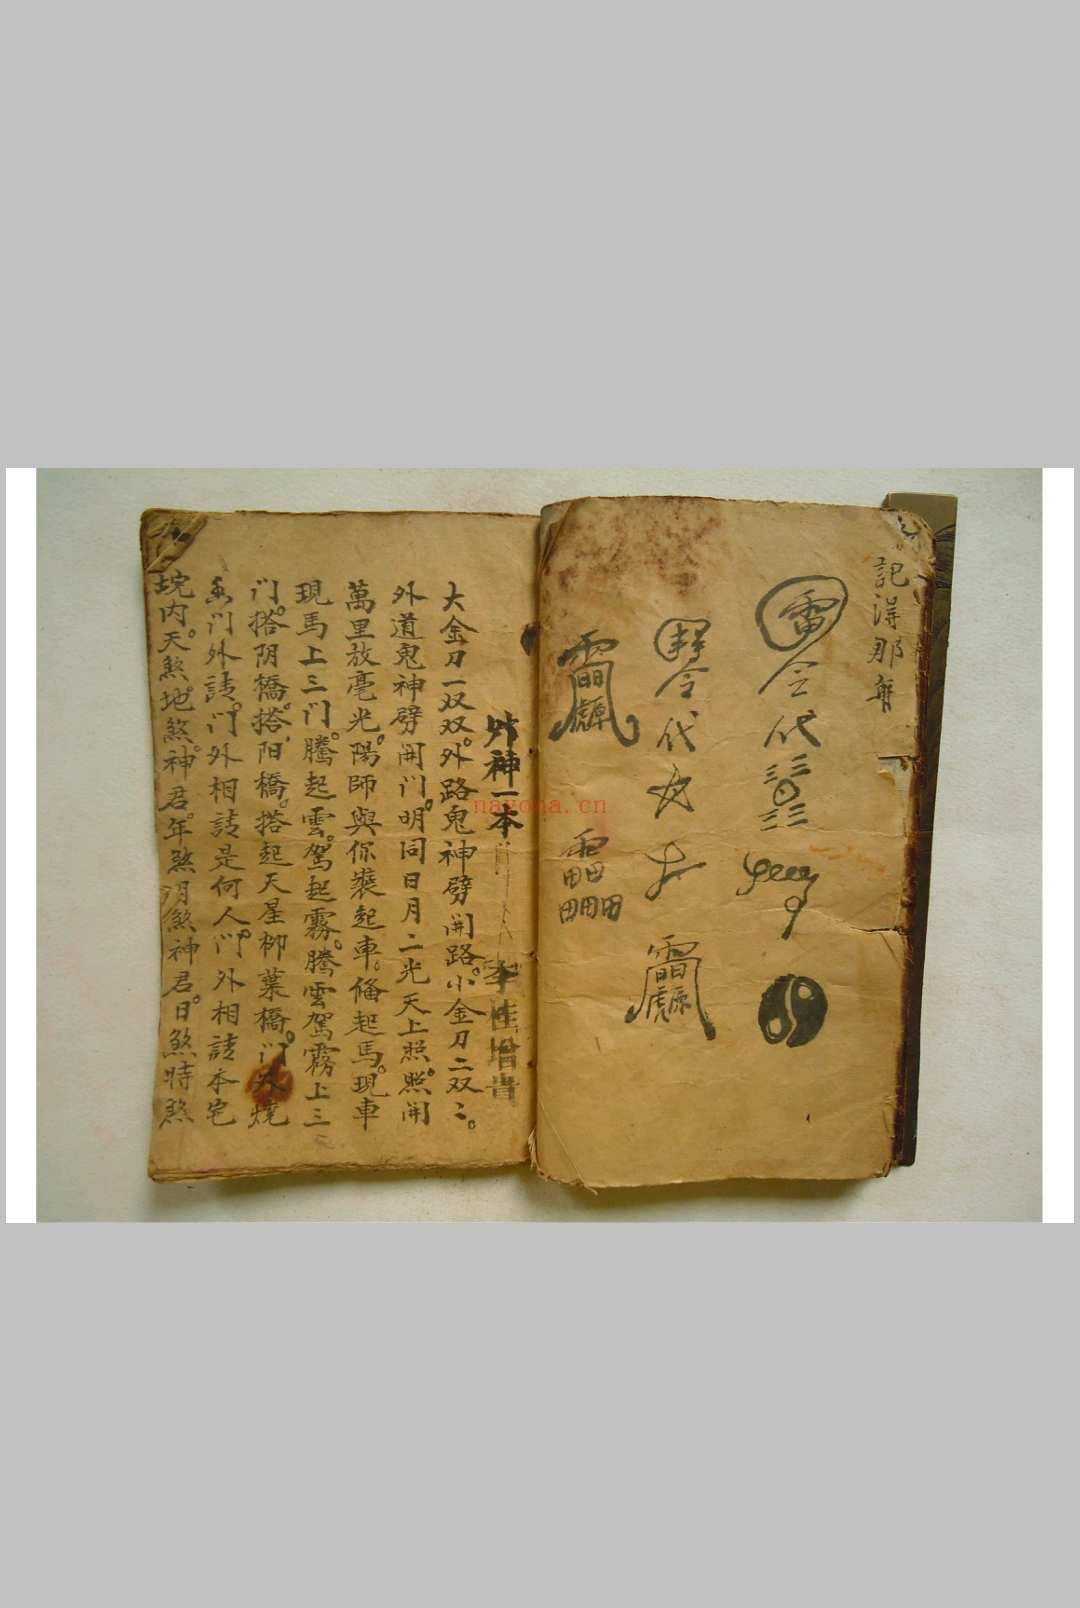 記得那
雷
令代
令代
外神一本
大金刀一双双。外路鬼神劈開路。小金刀二双二。
外道鬼神劈開门。明同日月二光天上照。照開
萬里放毫光。陽師與你裝起車。俻起馬。現車
現馬上三门。騰起雲。駕起霧。騰雲駕霧上三
门。搭阴橋。搭阳橋。搭起天星柳葉橋。门 燒
门外請。门外相請是何人。门外相請本宅
垸内天。煞地。煞神。君年。煞月煞神君日。煞時煞
nayona.cn